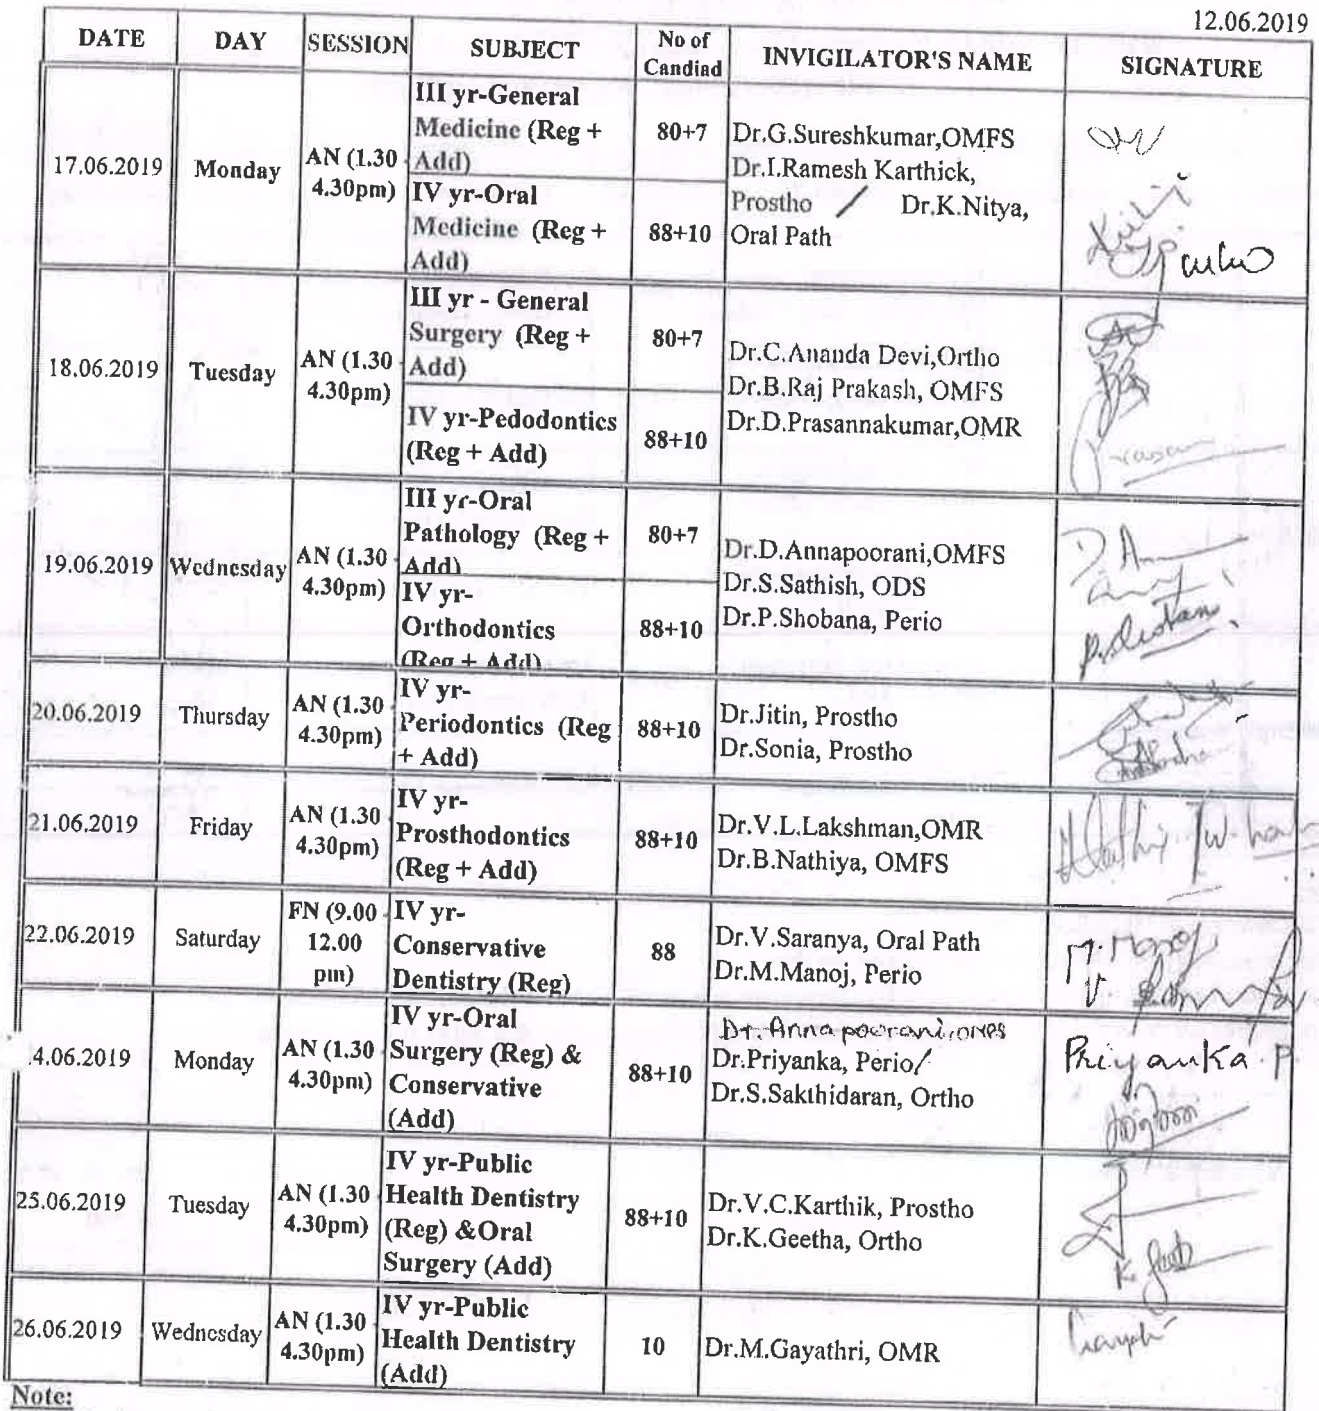 12.06.2019
DATE DAY SESSION SUBJECT No of Candiad INVIGILATOR'S NAME SIGNATURE
17.06.2019 Monday AN (1.30 4.30pm)
III yr-General
Medicine (Reg +
Add)
80+7
IV yr-Oral
Medicine (Reg +
Add)
88+10
Dr.G.Sureshkumar,OMFS
Dr.I.Ramesh Karthick,
Prostho / Dr.K.Nitya,
Oral Path
18.06.2019 Tuesday AN (1.30 4.30pm)
III yr - General
Surgery (Reg +
Add)
80+7
IV yr-Pedodontics
(Reg + Add)
88+10
Dr.C.Ananda Devi,Ortho
Dr.B.Raj Prakash, OMFS
Dr.D.Prasannakumar,OMR
19.06.2019 Wednesday AN (1.30 4.30pm)
III yr-Oral
Pathology (Reg +
Add)
80+7
IV yr-
Orthodontics
(Reg + Add)
88+10
Dr.D.Annapoorani,OMFS
Dr.S.Sathish, ODS
Dr.P.Shobana, Perio
20.06.2019 Thursday AN (1.30 4.30pm)
IV yr-
Periodontics (Reg
+ Add)
88+10
Dr.Jitin, Prostho
Dr.Sonia, Prostho
21.06.2019 Friday AN (1.30 4.30pm)
IV yr-
Prosthodontics
(Reg + Add)
88+10
Dr.V.L.Lakshman,OMR
Dr.B.Nathiya, OMFS
22.06.2019 Saturday FN (9.00 - 12.00 pm)
IV yr-
Conservative
Dentistry (Reg)
88
Dr.V.Saranya, Oral Path
Dr.M.Manoj, Perio
M. Manoj
4.06.2019 Monday AN (1.30 4.30pm)
IV yr-Oral
Surgery (Reg) &
Conservative
(Add)
88+10
Dr.Annapoorani,OMFS
Dr.Priyanka, Perio/
Dr.S.Sakthidaran, Ortho
Priyanka.P
25.06.2019 Tuesday AN (1.30 4.30pm)
IV yr-Public
Health Dentistry
(Reg) &Oral
Surgery (Add)
88+10
Dr.V.C.Karthik, Prostho
Dr.K.Geetha, Ortho
26.06.2019 Wednesday AN (1.30 4.30pm)
IV yr-Public
Health Dentistry
(Add)
10
Dr.M.Gayathri, OMR
Note: